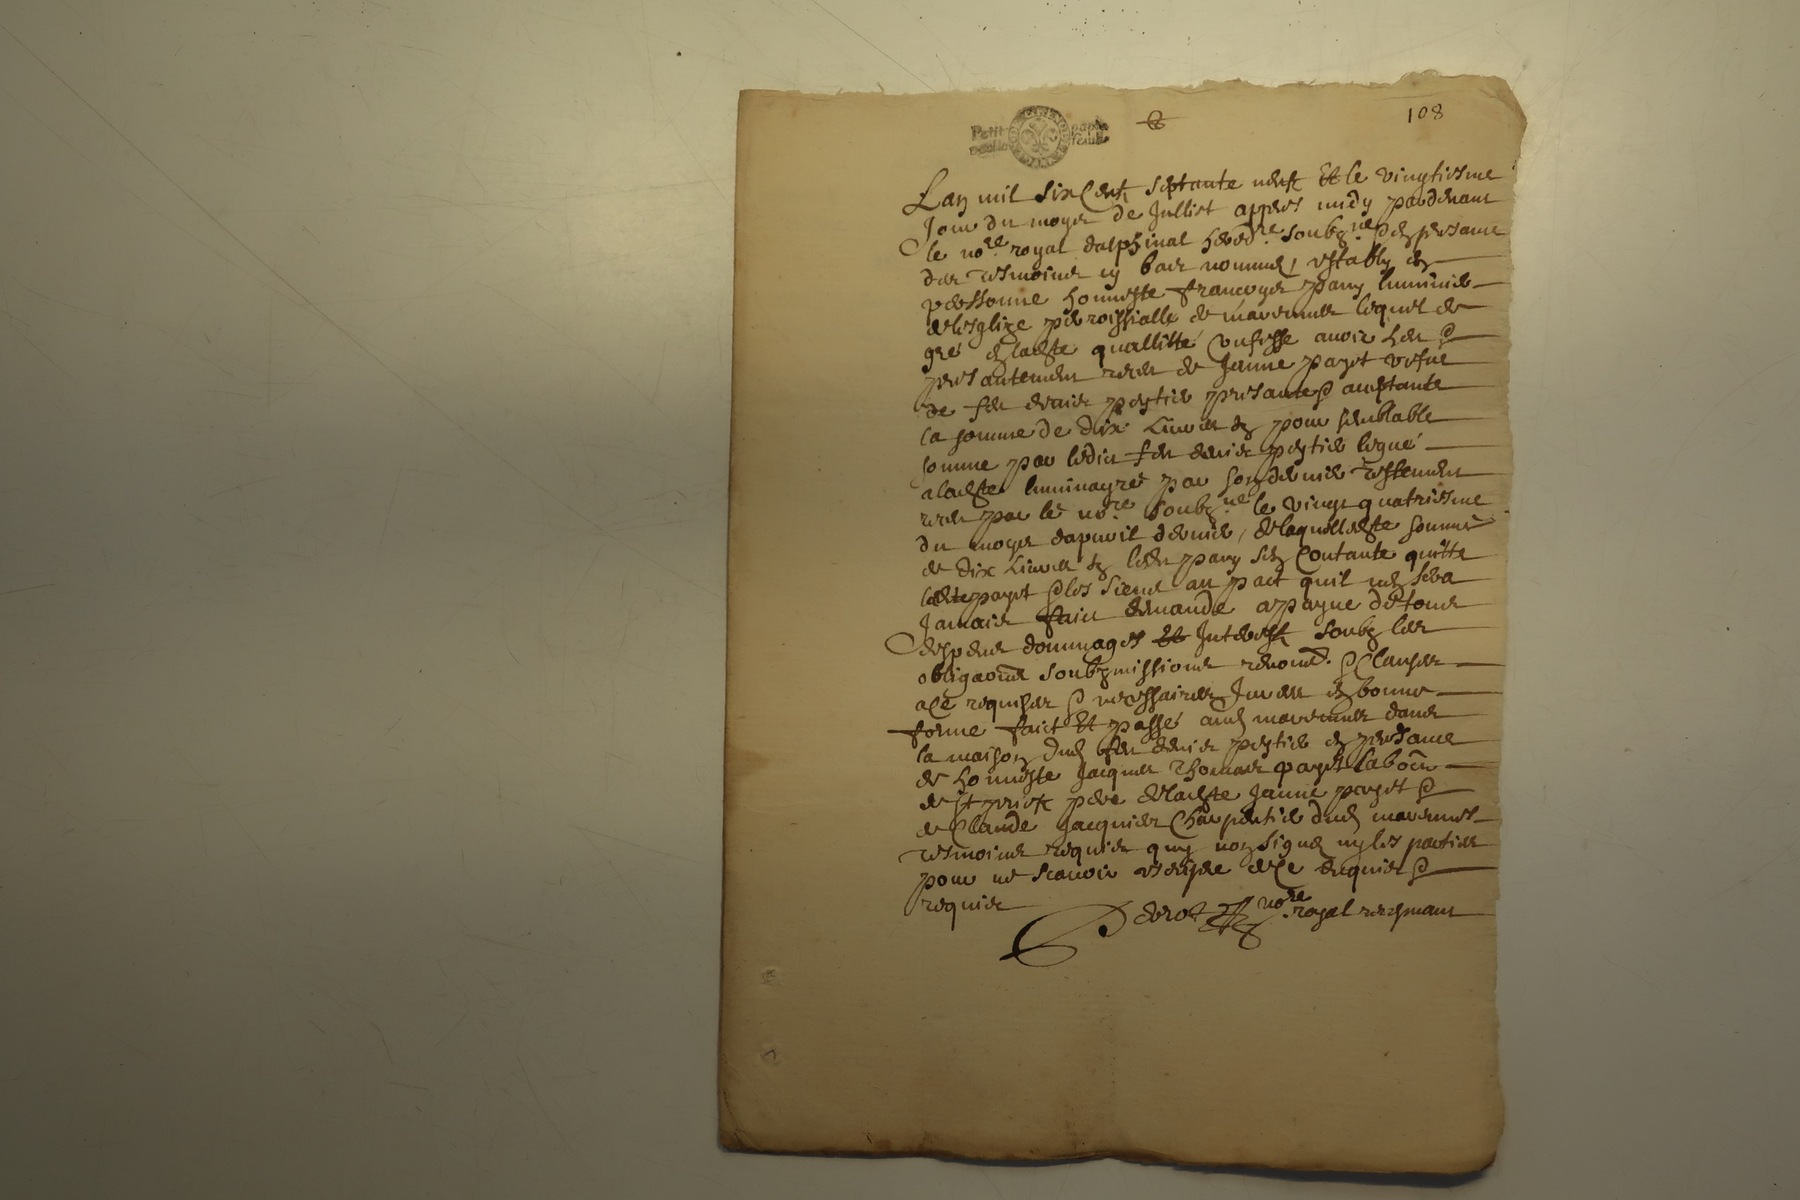 108
Petit papier
Lan mil six Cents septante neuf Et le vingtiesme
Jour du moys de Julliet appres midy pardevant
le no.re royal dalphinal hered.re soubz.ne & en presance
des tesmoins cy bas nommes, estably en
personne honneste françoys luminier
de lesglize perroissialle de lequel de
gré en ladte quallitté Confesse avoir heu &
presantement receu de Jeanne payet vefve
de feu peytier presante & acceptante
la somme de dix Livres & pour semblable
somme par ledict feu peytier legué
a ladte luminayre par son dernier testement
receu par le no.re soubz.ne le vingt quatriesme
du moys dapvril dernier, de laquelle dte somme
de dix Livres Contante quitte
ladte payet & les siens au pact quil nen sera
Jamais faict demande a payne de tous
despens dommages Et Interests soubz les
obligaons soubzmissions renon & Clauses
a ce requises & necessaires Jurees en bonne
forme faict Et passé aud dans
la maison dud feu peytier en presance
de honneste Jacques Thomas payet labor
de st priest pere de ladte Jeanne payet &
de Claude Jacquier Charpentier dud
tesmoins requis quy non signe ny les parties
pour ne scavoir escripre de Ce enquis &
requis
no.re royal recepvant